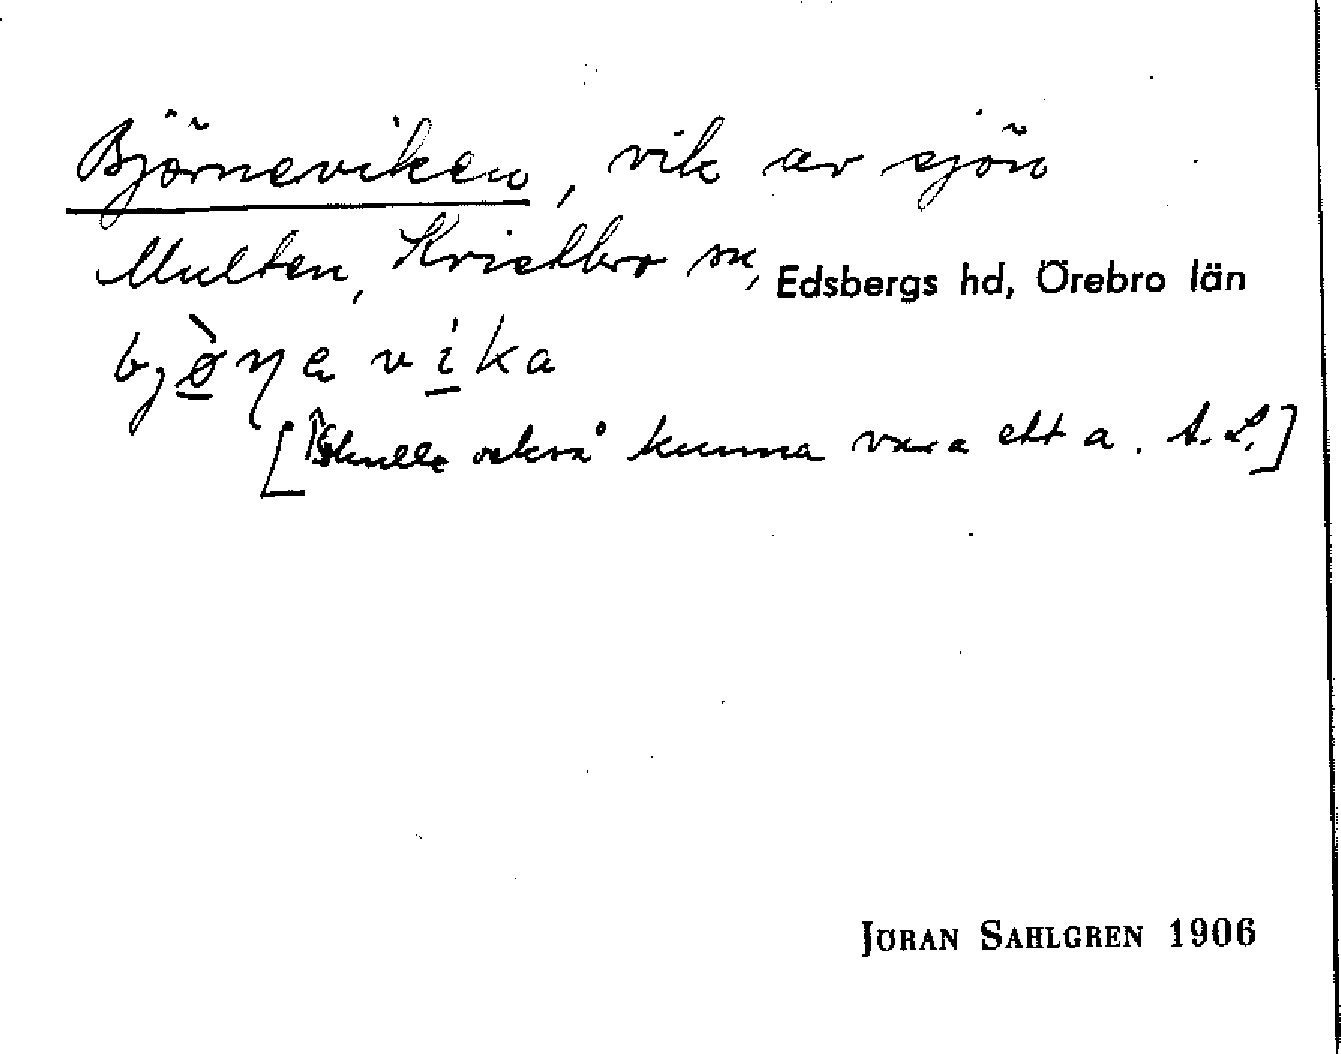 Björneviken, vik av sjön
Multen, Kvistbro sn, Edsbergs hd, Örebro län
bjø̀ɳe vika
[Skulle också kunna vara ett a. A.L.]
JÖRAN SAHLGREN 1906